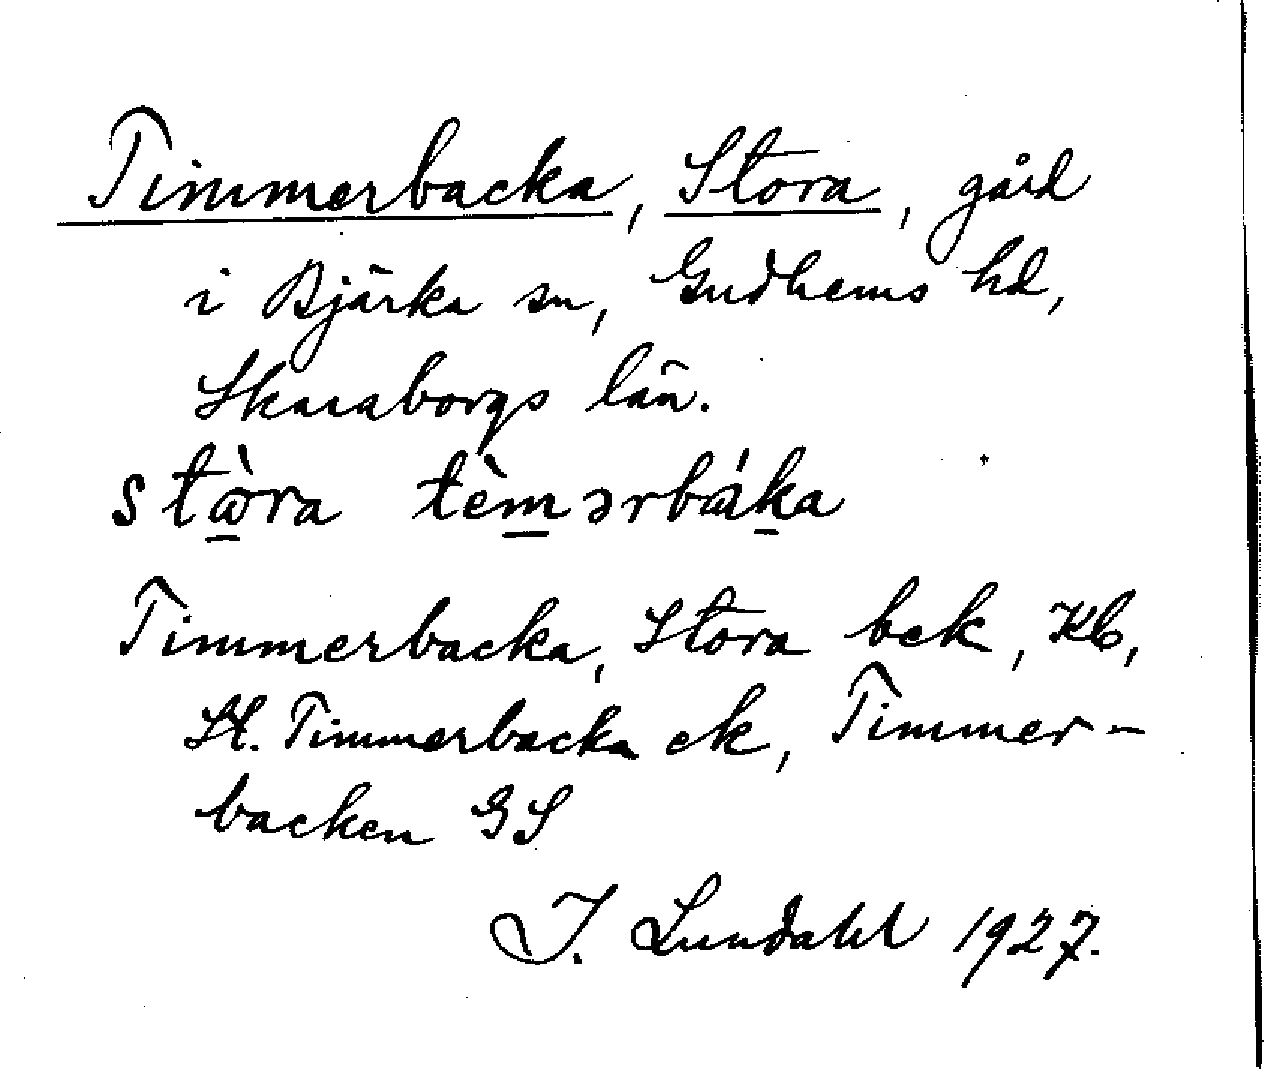 Timmerbacka, Stora, gård
i Bjärka sn, Gudhems hd,
Skaraborgs län.
stὼra tèmərbáka
Timmerbacka, Stora bek, Kb,
St. Timmerbacka ek, Timmer-
backen GS
I. Lundahl 1927.